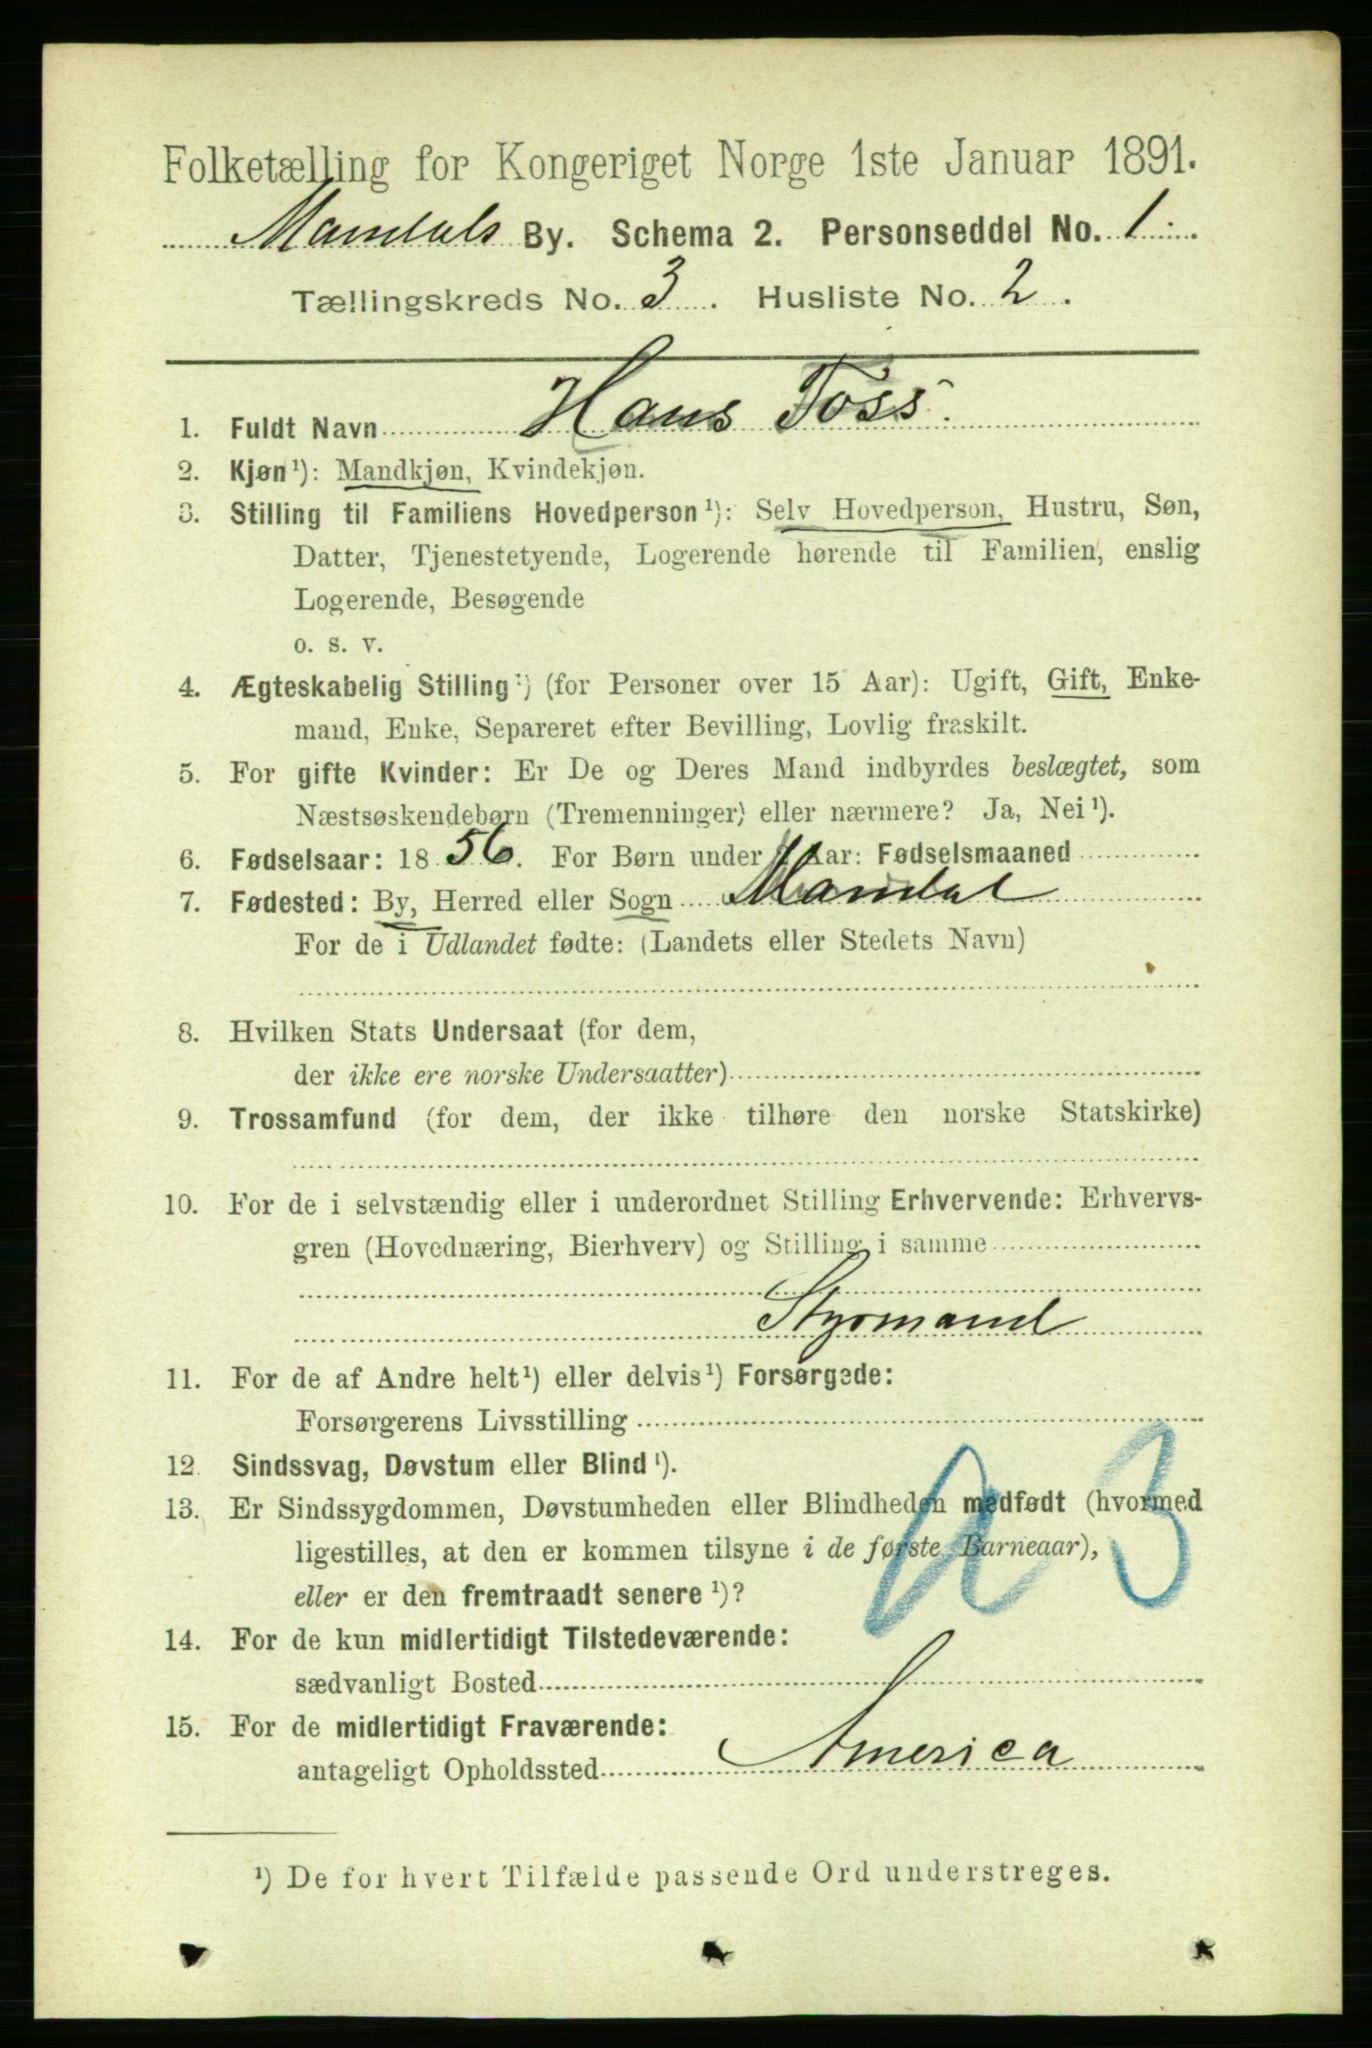 Folketælling for Kongeriget Norge 1ste Januar 1891.
Mandals By. Schema 2. Personseddel No. 1.
Tællingskreds No. 3. Husliste No. 2.
1. Fuldt Navn Hans Foss.
2. Kjøn ¹): Mandkjøn, Kvindekjøn.
3. Stilling til Familiens Hovedperson ¹): Selv Hovedperson, Hustru, Søn,
Datter, Tjenestetyende, Logerende hørende til Familien, enslig
Logerende, Besøgende
o. s. v.
4. Ægteskabelig Stilling ¹) (for Personer over 15 Aar): Ugift, Gift, Enke-
mand, Enke, Separeret efter Bevilling, Lovlig fraskilt.
5. For gifte Kvinder: Er De og Deres Mand indbyrdes beslægtet, som
Næstsøskendebørn (Tremenninger) eller nærmere? Ja, Nei ¹).
6. Fødselsaar: 1856. For Børn under Aar: Fødselsmaaned
7. Fødested: By, Herred eller Sogn Mandal
For de i Udlandet fødte: (Landets eller Stedets Navn)
8. Hvilken Stats Undersaat (for dem,
der ikke ere norske Undersaatter)
9. Trossamfund (for dem, der ikke tilhøre den norske Statskirke)
10. For de i selvstændig eller i underordnet Stilling Erhvervende: Erhvervs-
gren (Hovednæring, Bierhverv) og Stilling i samme
Styrmand
11. For de af Andre helt ¹) eller delvis ¹) Forsørgede:
Forsørgerens Livsstilling
12. Sindssvag, Døvstum eller Blind ¹).
13. Er Sindssygdommen, Døvstumheden eller Blindheden medfødt (hvormed
ligestilles, at den er kommen tilsyne i de første Barneaar),
eller er den fremtraadt senere ¹)?
14. For de kun midlertidigt Tilstedeværende:
sædvanligt Bosted
15. For de midlertidigt Fraværende:
antageligt Opholdssted America
¹) De for hvert Tilfælde passende Ord understreges.